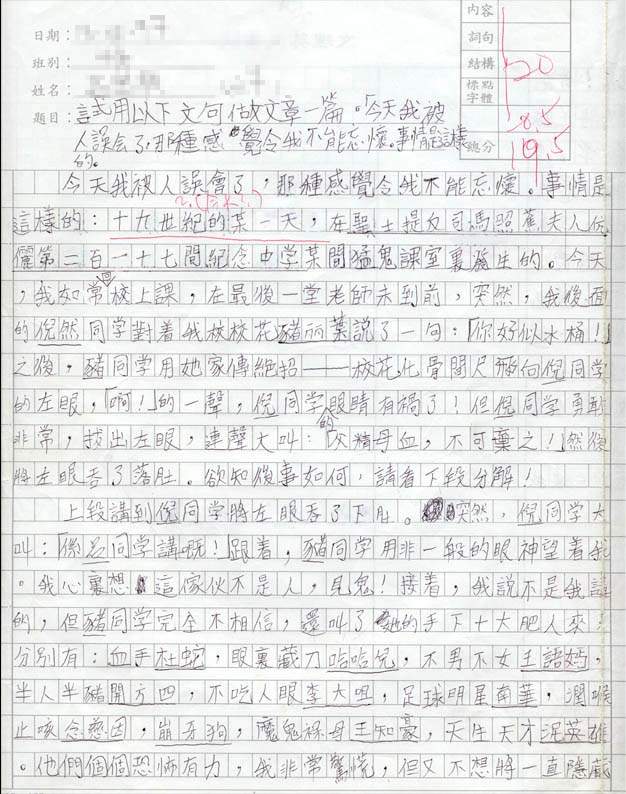 內容
日期：
詞句
班別：
結構
20
姓名：
標點
字體
-8.5
題目：試用以下文句做文章一篇。「今天我被
人誤会了，那種感覺令我不能忘懷。事情是這樣
的。
總分
19.5
今天我被人誤會了，那種感覺令我不能忘懷。事情是
這樣的：十九世紀的某一天，在聖士提反司馬照蕉夫人伉
儷第二百一十七間紀念中学某間猛鬼課室裏發生的。今天
，我如常回校上課，在最後一堂老師未到前，突然，我後面
的倪然同学對着我校校花豬丽葉説了一句：「你好似水桶！」
之後，豬同学用她家傳絕招——校花化骨間尺飛向倪同学
的左眼，「啊！」的一聲，倪同学的眼睛有禍了！但倪同学勇敢
非常，拔出左眼，連聲大叫：「父精母血，不可棄之！」然後
將左眼吞了落肚。欲知後事如何，請看下段分解！
上段講到倪同学將左眼吞了下肚。突然，倪同学大
叫：「係呂同学講嘅！」跟着，豬同学用非一般的眼神望着我
。我心裏想這傢伙不是人，見鬼！接着，我說不是我講
的，但豬同学完全不相信，還叫了她的手下十大肥人來！
分別有：血手杜蛇，眼裏藏刀哈哈兒，不男不女王諾嫣，
半人半豬開方四，不吃人眼李大咀，足球明星南華，潤喉
止咳念慈因，崩牙狗，魔鬼褓母王知豪，天生天才泥英雄
。他們個個恐怖有力，我非常驚慌，但又不想將一直隱藏